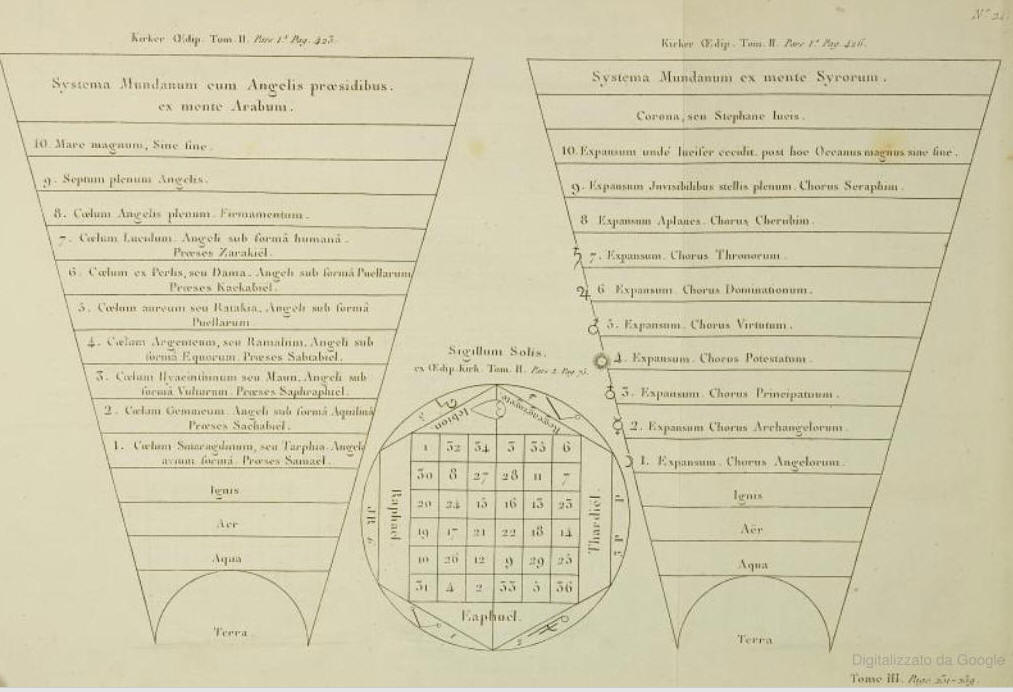 N.º 21.
Kirker Œdip. Tom. II. Pars 1.ª Pag. 423.
Systema Mundanum cum Angelis præsidibus.
ex mente Arabum.
10. Mare magnum, Sine fine.
9. Septum plenum Angelis.
8. Cœlum Angelis plenum. Firmamentum.
7. Cœlum Lucidum. Angeli sub formâ humanâ.
Præses Zarakiel.
6. Cœlum ex Perlis, seu Dama. Angeli sub formâ Puellarum
Præses Kackabiel.
5. Cœlum aureum seu Ratakia. Angeli sub formâ
Puellarum
4. Cœlum Argenteum, seu Ramalun. Angeli sub
formâ Equorum. Præses Sabtabiel.
3. Cœlum Hyacinthinum seu Maun. Angeli sub
formâ Vulturum. Præses Saphraphiel.
2. Cœlum Gemmeum. Angeli sub formâ Aquilina
Præses Sachabiel.
1. Cœlum Smaragdinum, seu Tarphia. Angeli
avium formâ. Præses Samael.
Ignis
Aer
Aqua
Terra.
Sigillum Solis.
ex Œdip. Kirk. Tom. II. Pars 2. Pag. 75.
1 32 34 3 35 6
30 8 27 28 11 7
20 24 15 16 13 23
19 17 21 22 18 14
10 26 12 9 29 25
31 4 2 33 5 36
Raphael
Thardiel.
Eaphuel.
Kirker Œdip. Tom. II. Pars 1.ª Pag. 426.
Systema Mundanum ex mente Syrorum.
Corona, seu Stephane lucis.
10. Expansum undé lucifer cecidit, post hoc Oceanus magnus sine fine.
9. Expansum Jnvisibilibus stellis plenum. Chorus Seraphim.
8 Expansum Aplanes. Chorus Cherubim.
♄ 7. Expansum. Chorus Thronorum.
♃ 6 Expansum. Chorus Dominationum.
♂ 5. Expansum. Chorus Virtutum.
4. Expansum. Chorus Potestatum.
♀ 3. Expansum. Chorus Principatuum.
☿ 2. Expansum Chorus Archangelorum.
☽ 1. Expansum. Chorus Angelorum.
Ignis
Aër
Aqua
Terra
Digitalizzato da Google
Tomo III. Page 231-239.